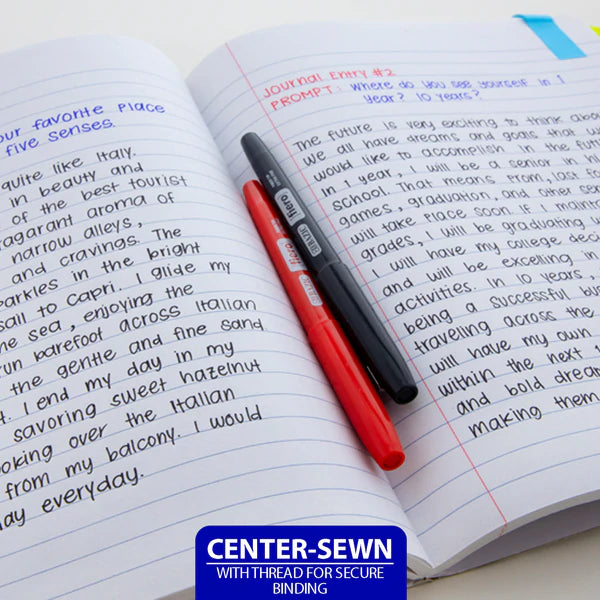 our favorite Place
five senses.
quite like Italy.
in beauty and
of the best tourist
ragarant aroma of
narrow alleys,
and cravings. The
parkles in the bright
sail to Capri. I glide my
he sea, enjoying the
run barefoot across Italian
the gentle and fine sand.
t. I end my day in my
savoring sweet hazelnut
oking over the Italian
from my balcony. I would
ay everyday.
Journal Entry #2
PROMPT: Where do you see yourself in 1
Year? 10 Years?
The future is very exciting to think abou
We all have dreams and goals that w
would like to accomplish in the futu
In 1 year, I will be a senior in hi
school. That means Prom, last fo
games, graduation, and other sen
will take place soon. If I maint
grades, I will be graduating w
I will have my college deci
and will be excelling in
activities. In 10 years,
being a successful
traveling across the
will have my own
within the next 1
and bold dream
making them
hero
hero
CENTER-SEWN
WITH THREAD FOR SECURE
BINDING